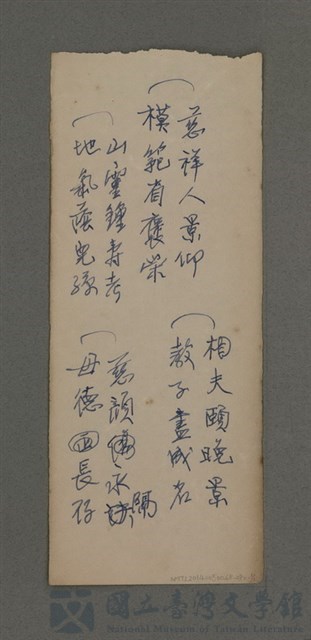 慈祥人景仰
模範省褒榮
山靈鍾壽考
地氣蔭兒孫
相夫頤晚景
教子盡成名
慈顏傷永隔
母德四長存
國立臺灣文學館
National Museum of Taiwan Literature